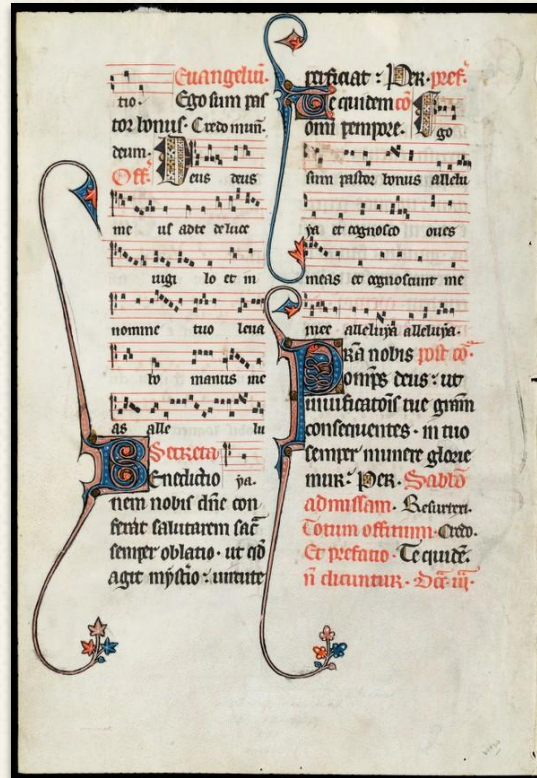 Euangeliū.
tio. Ego sum pas
tor bonus. Credo mun̄
deum. Deus deus
Off̄.
me us ad te de luce
uigi lo et in
nomine tuo leua
bo manus me
as alle lu
Secreta
Benedictio ya.
nem nobis dn̄e con
ferāt salutarem sac̄
semper oblatio. ut qd̄
agit mysт̄io: uirtute
perficiat: Per. pref̄.
Te quidem cō
omni tempore. Ego
sum pastor bonus allelu
ya et cognosco oues
meas et cognoscunt me
mee alleluya alleluya.
Pr̄a nobis post cō.
omp̄s deus: ut
uiuificatōis tue gr̄am
consequentes. in tuo
semper munere glorie
mur: Per. Sabbō
ad missam. Resurrexi.
Totum offitium. Credo.
Et prefatio. Te quidē.
n̄ dicuntur. Dc̄a iij.